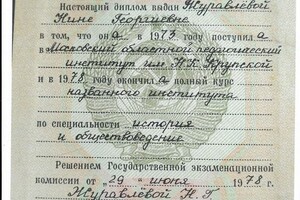 Настоящий диплом выдан Журавлёвой
Нине Георгиевне
в том, что она в 1973 году поступила в
Московский областной педагогический
институт им. Н.К. Крупской
и в 1978 году окончила полный курс
названного института
по специальности история
и обществоведение
Решением Государственной экзаменационной
комиссии от "29" июня 1978 г.
Журавлёвой Н.Г.